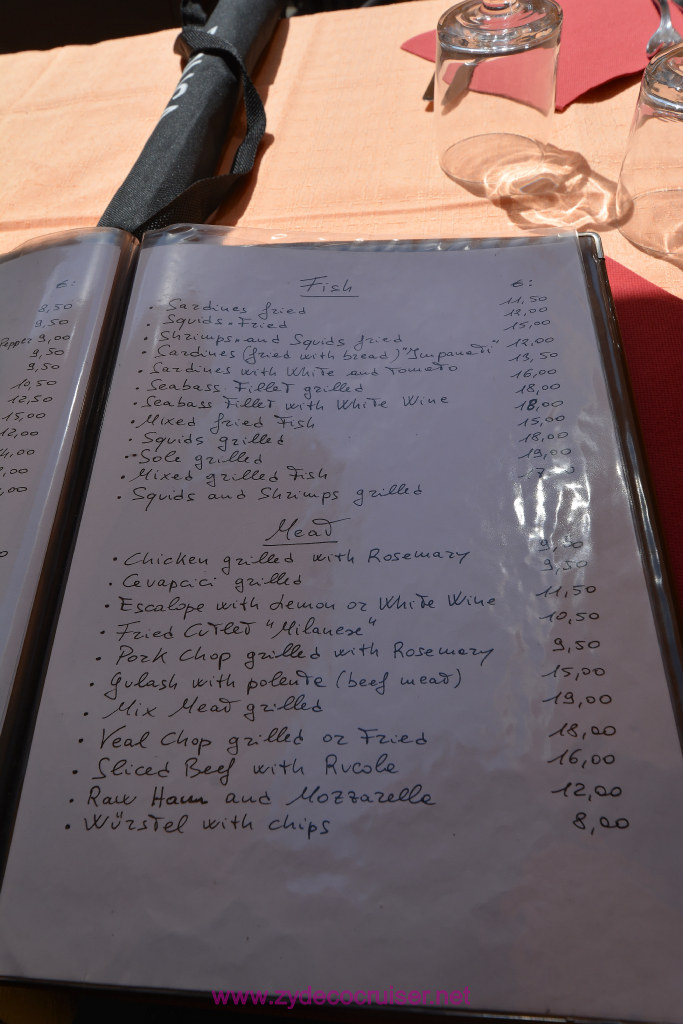 €:
8,50
9,50
Pepper 9,00
9,50
9,50
10,50
12,50
15,00
12,00
Fish €:
• Sardines fried 11,50
• Squids Fried 12,00
• Shrimps and Squids fried 15,00
• Sardines (fried with bread) "Impanati" 12,00
• Sardines with White and Tomato 13,50
• Seabass Fillet grilled 16,00
• Seabass Fillet with White Wine 18,00
• Mixed fried Fish 18,00
• Squids grilled 15,00
• Sole grilled 18,00
• Mixed grilled Fish 19,00
• Squids and Shrimps grilled
Mead
• Chicken grilled with Rosemary
• Cevapcici grilled 9,50
• Escalope with Lemon or White Wine 11,50
• Fried Cutlet "Milanese" 10,50
• Pork Chop grilled with Rosemary 9,50
• Gulash with polente (beef mead) 15,00
• Mix Mead grilled 19,00
• Veal Chop grilled or Fried 18,00
• Sliced Beef with Rucola 16,00
• Raw Ham and Mozzarella 12,00
• Würstel with chips 8,00
www.zydecocruiser.net